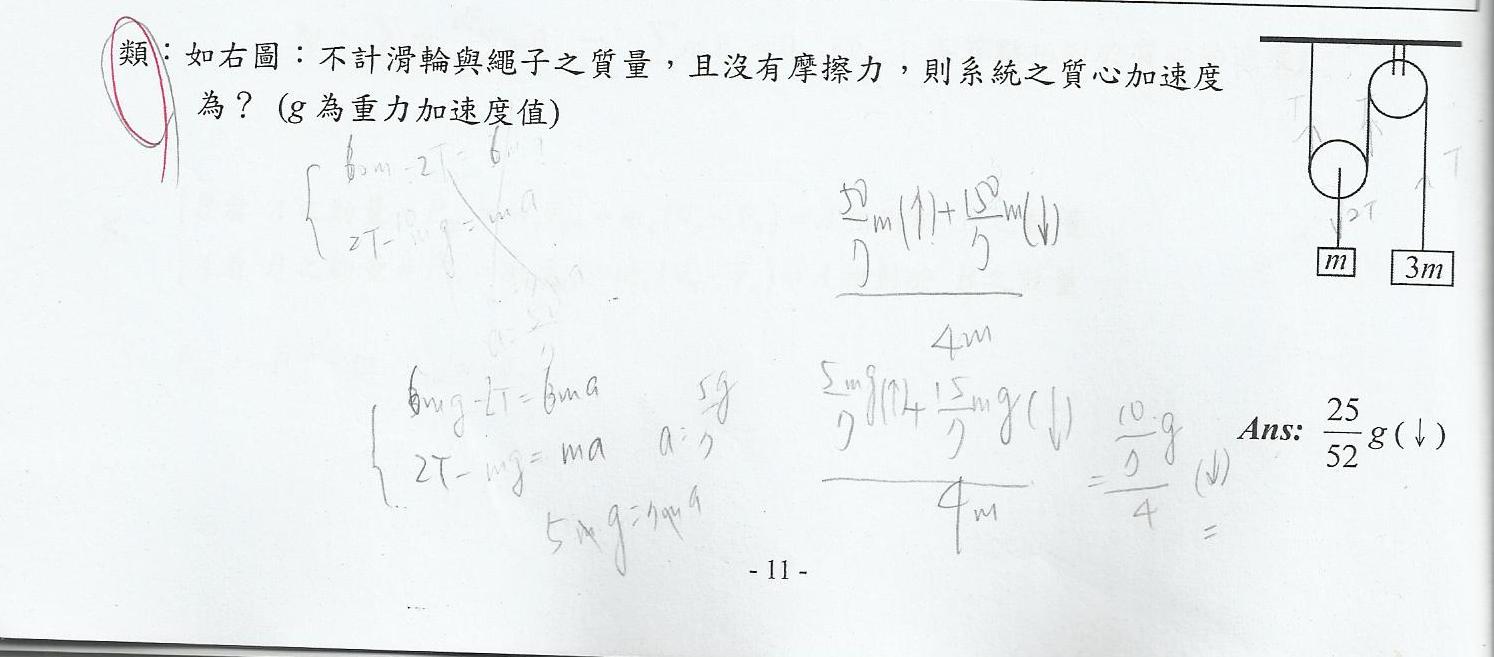 類：如右圖：不計滑輪與繩子之質量，且沒有摩擦力，則系統之質心加速度
為？ (g 為重力加速度值)
T
T
T
2T
m
3m
2T-
50/7 m(↑)+150/7 m(↓)
4m
6mg-2T=6ma
2T-mg=ma
a=5g/7
5mg=7ma
5/7 mg(↑)+15/7 mg(↓)
4m
=10/7 g
4
(↓)
=
Ans: 25/52 g(↓)
- 11 -